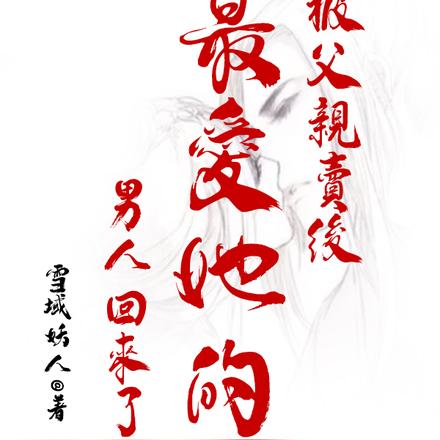 被父親賣後
最愛她的
男人回來了
雪域妖人◎著